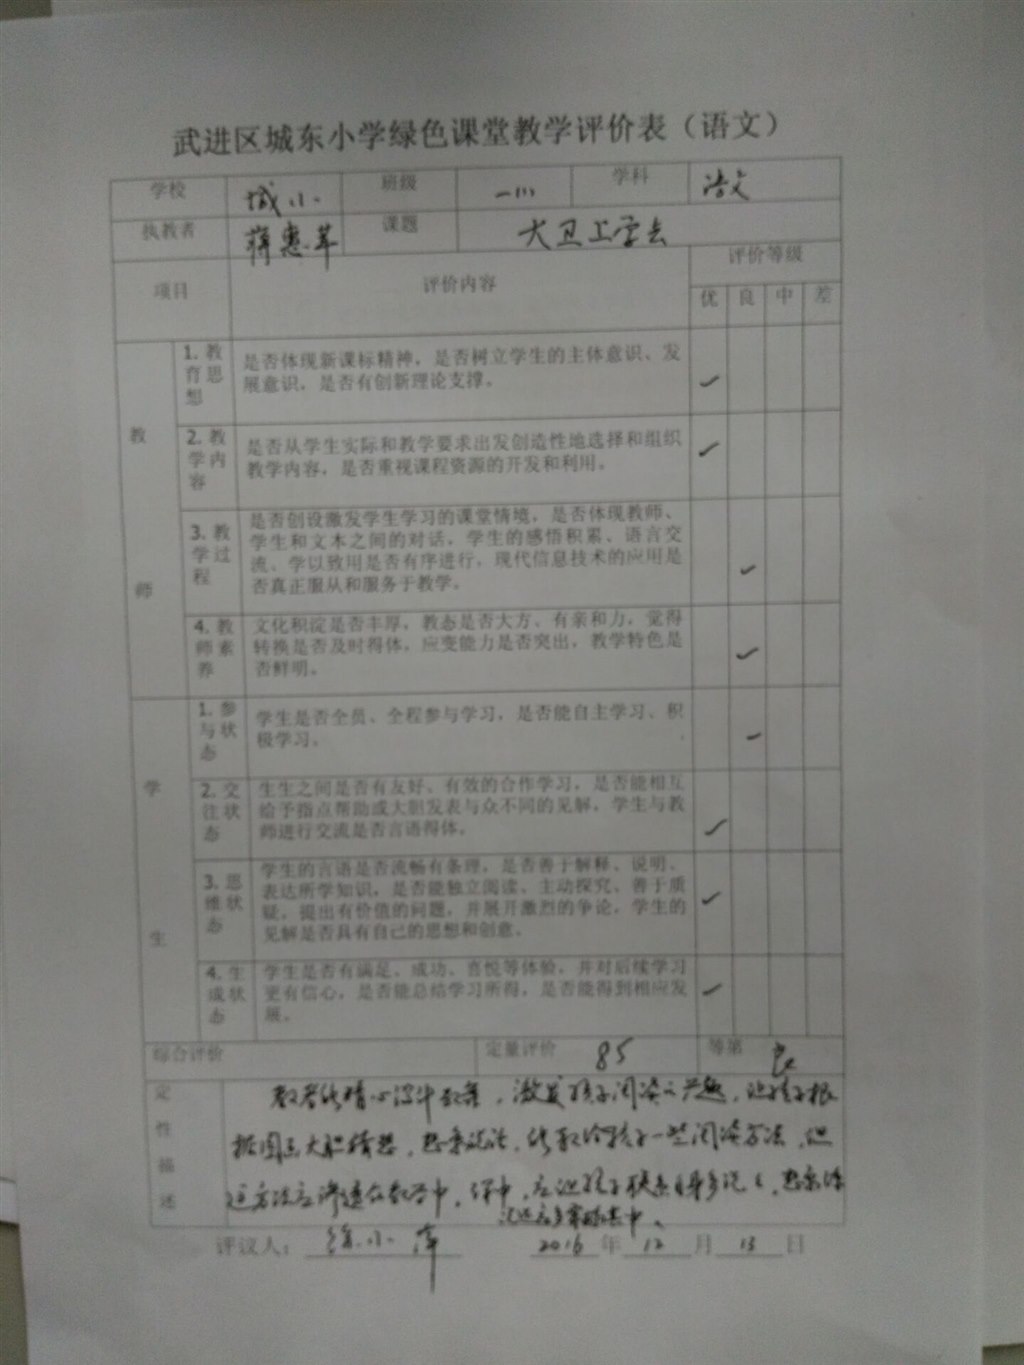 武进区城东小学绿色课堂教学评价表（语文）
学校 城小 班级 一(1) 学科 语文
执教者 蒋惠苹 课题 大卫上学去
项目 评价内容 评价等级
优 良 中 差
教师
1. 教育思想
是否体现新课标精神，是否树立学生的主体意识、发
展意识，是否有创新理论支撑。
✓
2. 教学内容
是否从学生实际和教学要求出发创造性地选择和组织
教学内容，是否重视课程资源的开发和利用。
✓
3. 教学过程
是否创设激发学生学习的课堂情境，是否体现教师、
学生和文本之间的对话，学生的感悟积累、语言交
流、学以致用是否有序进行，现代信息技术的应用是
否真正服从和服务于教学。
✓
4. 教师素养
文化积淀是否丰厚，教态是否大方、有亲和力，觉得
转换是否及时得体，应变能力是否突出，教学特色是
否鲜明。
✓
学生
1. 参与状态
学生是否全员、全程参与学习，是否能自主学习、积
极学习。
✓
2. 交往状态
生生之间是否有友好、有效的合作学习，是否能相互
给予指点帮助或大胆发表与众不同的见解，学生与教
师进行交流是否言语得体。
✓
3. 思维状态
学生的言语是否流畅有条理，是否善于解释、说明、
表达所学知识，是否能独立阅读、主动探究、善于质
疑，提出有价值的问题，并展开激烈的争论，学生的
见解是否具有自己的思想和创意。
✓
4. 生成状态
学生是否有满足、成功、喜悦等体验，并对后续学习
更有信心，是否能总结学习所得，是否能得到相应发
展。
✓
综合评价 定量评价 85 等第 良
定性描述
激发孩子阅读的兴趣，让孩子根
据图画大胆猜想，想象说话，教给孩子一些阅读方法，但
这方法应渗透在教学中，应让孩子联系自身多说
评议人： 徐小萍 2016年12月13日